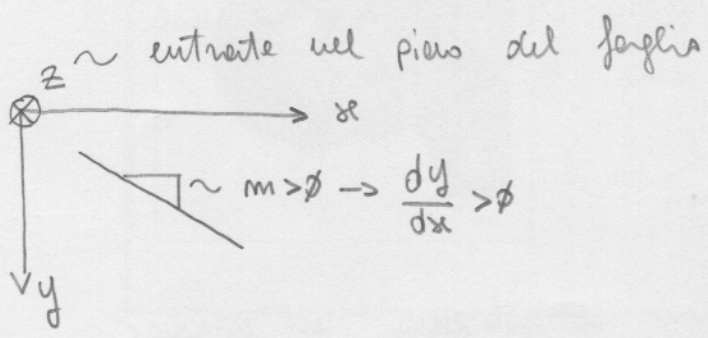 z ~ entrante nel piano del foglio
x
~ m>0 → dy/dx >0
y